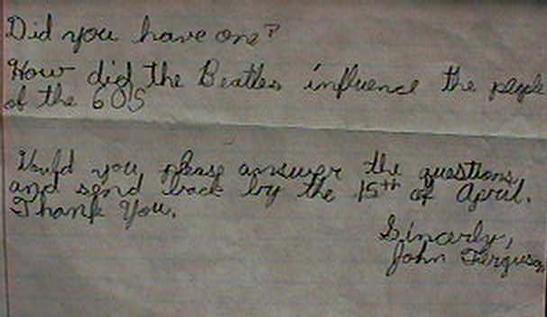 Did you have one?
How did the Beatles influence the people
of the 60S
Would you please answer the questions
and send back by the 15th of April.
Thank You.
Sincerly,
John Ferguson